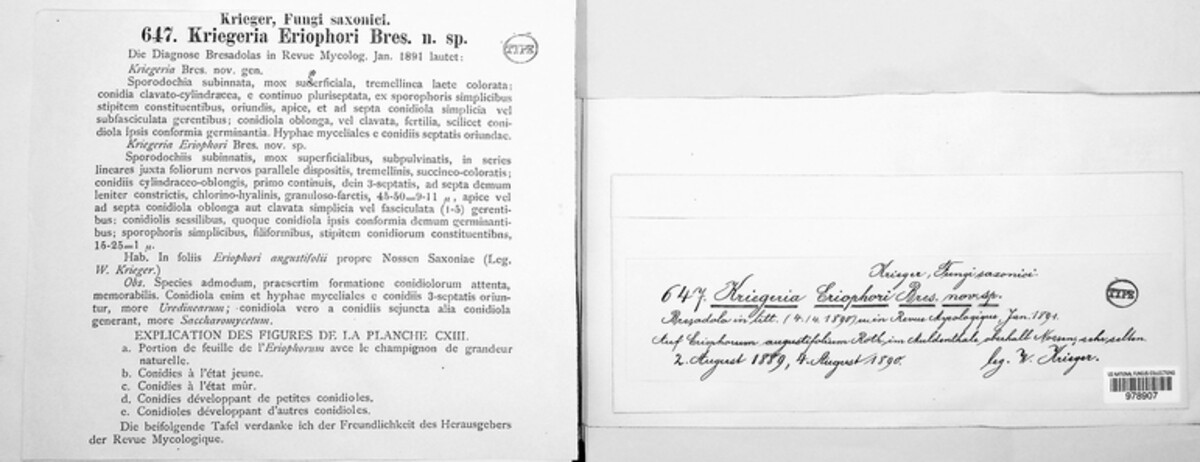 Krieger, Fungi saxonici.
647. Kriegeria Eriophori Bres. n. sp.
TYPE
Die Diagnose Bresadolas in Revue Mycolog. Jan. 1891 lautet:
Kriegeria Bres. nov. gen.
Sporodochia subinnata, mox superficiala, tremellinea laete colorata;
conidia clavato-cylindracea, e continuo pluriseptata, ex sporophoris simplicibus
stipitem constituentibus, oriundis, apice, et ad septa conidiola simplicia vel
subfasciculata gerentibus; conidiola oblonga, vel clavata, fertilia, scilicet coni-
diola ipsis conformia germinantia. Hyphae myceliales e conidiis septatis oriundae.
Kriegeria Eriophori Bres. nov. sp.
Sporodochiis subinnatis, mox superficialibus, subpulvinatis, in series
lineares juxta foliorum nervos parallele dispositis, tremellinis, succineo-coloratis;
conidiis cylindraceo-oblongis, primo continuis, dein 3-septatis, ad septa demum
leniter constrictis, chlorino-hyalinis, granuloso-farctis, 45-50=9-11 µ, apice vel
ad septa conidiola oblonga aut clavata simplicia vel fasciculata (1-5) gerenti-
bus; conidiolis sessilibus, quoque conidiola ipsis conformia demum germinanti-
bus; sporophoris simplicibus, filiformibus, stipitem conidiorum constituentibus,
15-25=1 µ.
Hab. In foliis Eriophori angustifolii propre Nossen Saxoniae (Leg.
W. Krieger.)
Obs. Species admodum, praesertim formatione conidiolorum attenta,
memorabilis. Conidiola enim et hyphae myceliales e conidiis 3-septatis oriun-
tur, more Uredinearum; conidiola vero a conidiis sejuncta alia conidiola
generant, more Saccharomycetum.
EXPLICATION DES FIGURES DE LA PLANCHE CXIII.
a. Portion de feuille de l'Eriophorum avec le champignon de grandeur
naturelle.
b. Conidies à l'état jeune.
c. Conidies à l'état mûr.
d. Conidies développant de petites conidioles.
e. Conidioles développant d'autres conidioles.
Die beifolgende Tafel verdanke ich der Freundlichkeit des Herausgebers
der Revue Mycologique.
Krieger, Fungi saxonici
647. Kriegeria Eriophori Bres. nov. sp.
TYPE
Bresadola in litt. (4./4. 1890) u. in Revue Mycologique, Jan. 1891.
Auf Eriophorum angustifolium Roth, im Muldenthale, oberhalb Nossen, sehr selten.
2. August 1889, 4. August 1890. leg. W. Krieger.
US NATIONAL FUNGUS COLLECTIONS
978907